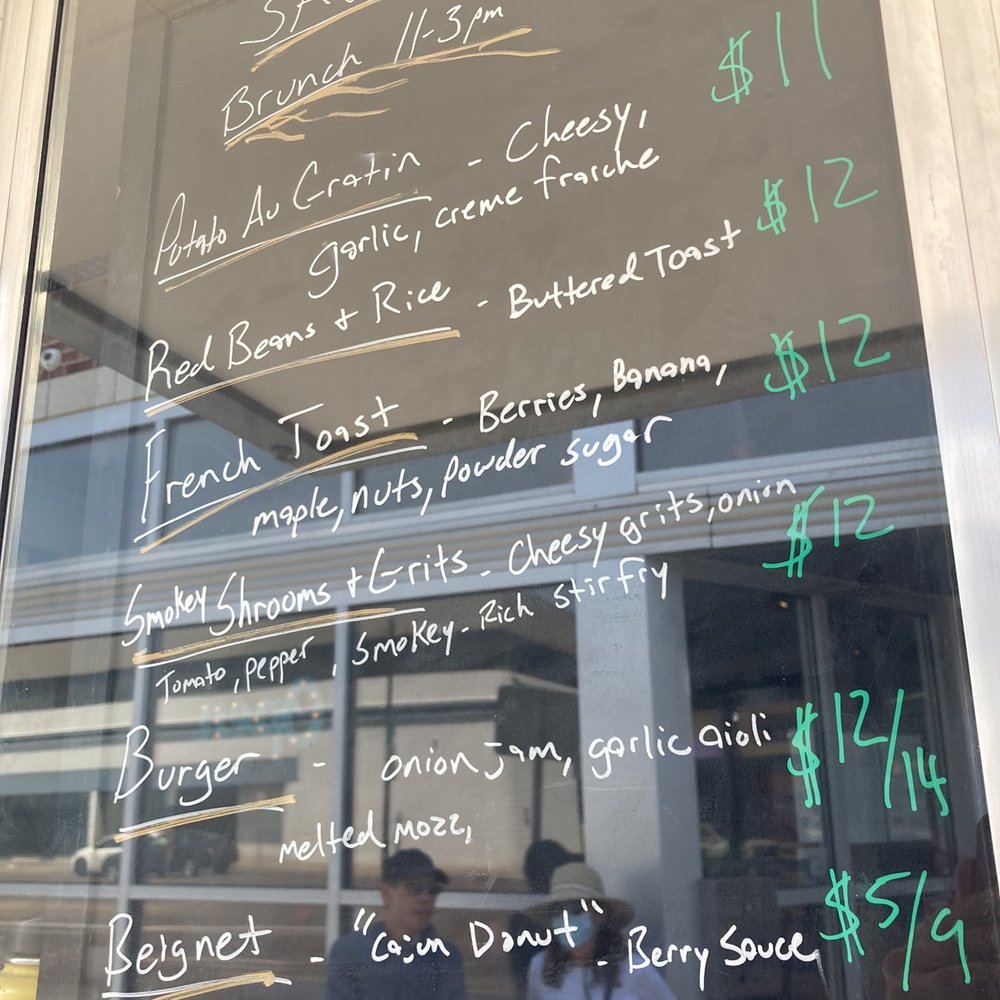 Brunch 11-3pm
Potato Au Gratin - Cheesy, $11
garlic, creme fraiche
Red Beans + Rice - Buttered Toast $12
French Toast - Berries, Banana, $12
maple, nuts, powder sugar
Smokey Shrooms + Grits - Cheesy grits, onion $12
Tomato, pepper, Smokey-Rich stir fry
Burger - onion jam, garlic aioli $12/14
melted mozz,
Beignet - "Cajun Donut" - Berry Sauce $5/9